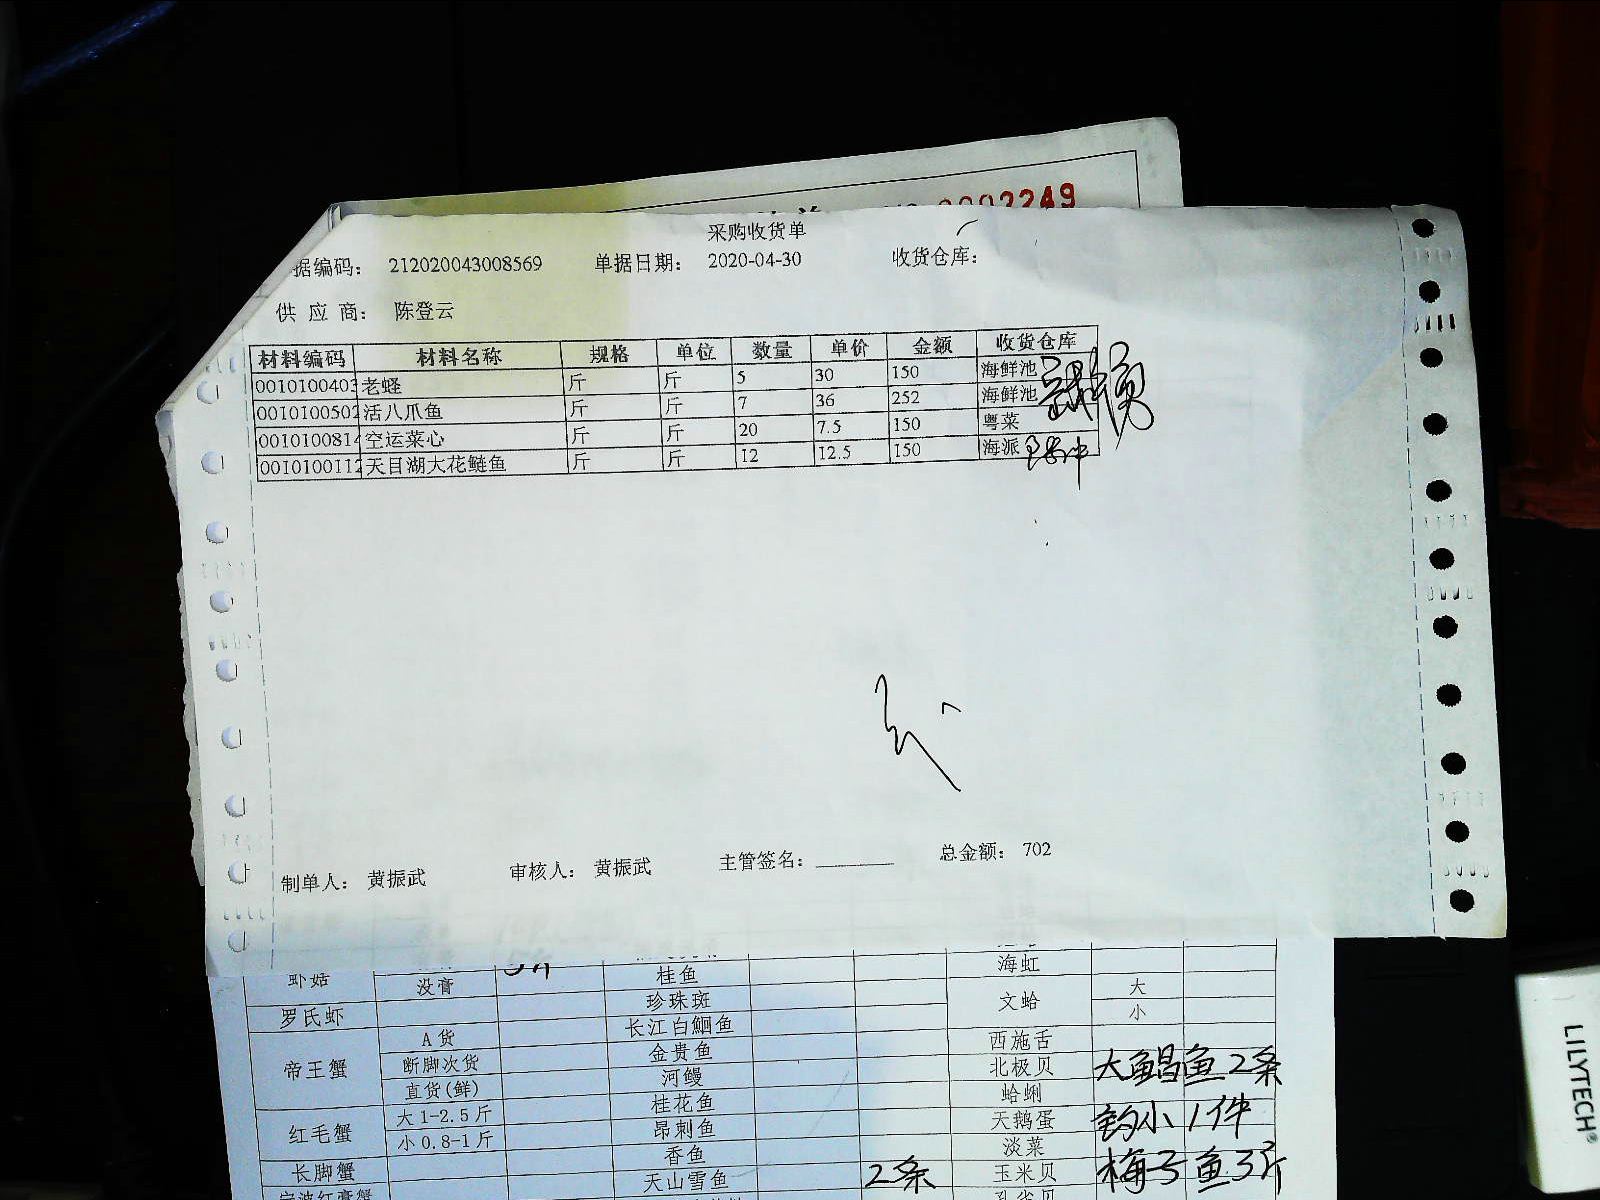 2249
采购收货单
据编码： 212020043008569 单据日期： 2020-04-30 收货仓库：
供 应 商： 陈登云
材料编码 材料名称 规格 单位 数量 单价 金额 收货仓库
0010100403 老蛏 斤 斤 5 30 150 海鲜池
0010100502 活八爪鱼 斤 斤 7 36 252 海鲜池
0010100814 空运菜心 斤 斤 20 7.5 150 粤菜
0010100112 天目湖大花鲢鱼 斤 斤 12 12.5 150 海派
制单人： 黄振武 审核人： 黄振武 主管签名： 总金额： 702
虾菇 没膏 桂鱼 海虹
罗氏虾 珍珠斑 文蛤 大
小
A货 长江白鮰鱼 西施舌
帝王蟹 断脚次货 金贵鱼 北极贝 大鲳鱼2条
直货(鲜) 河鳗 蛤蜊
红毛蟹 大1-2.5斤 桂花鱼 天鹅蛋 钓小1件
小0.8-1斤 昂刺鱼 淡菜
长脚蟹 香鱼 玉米贝 梅子鱼3斤
宁波红膏蟹 天山雪鱼 2条
LILYTECH®